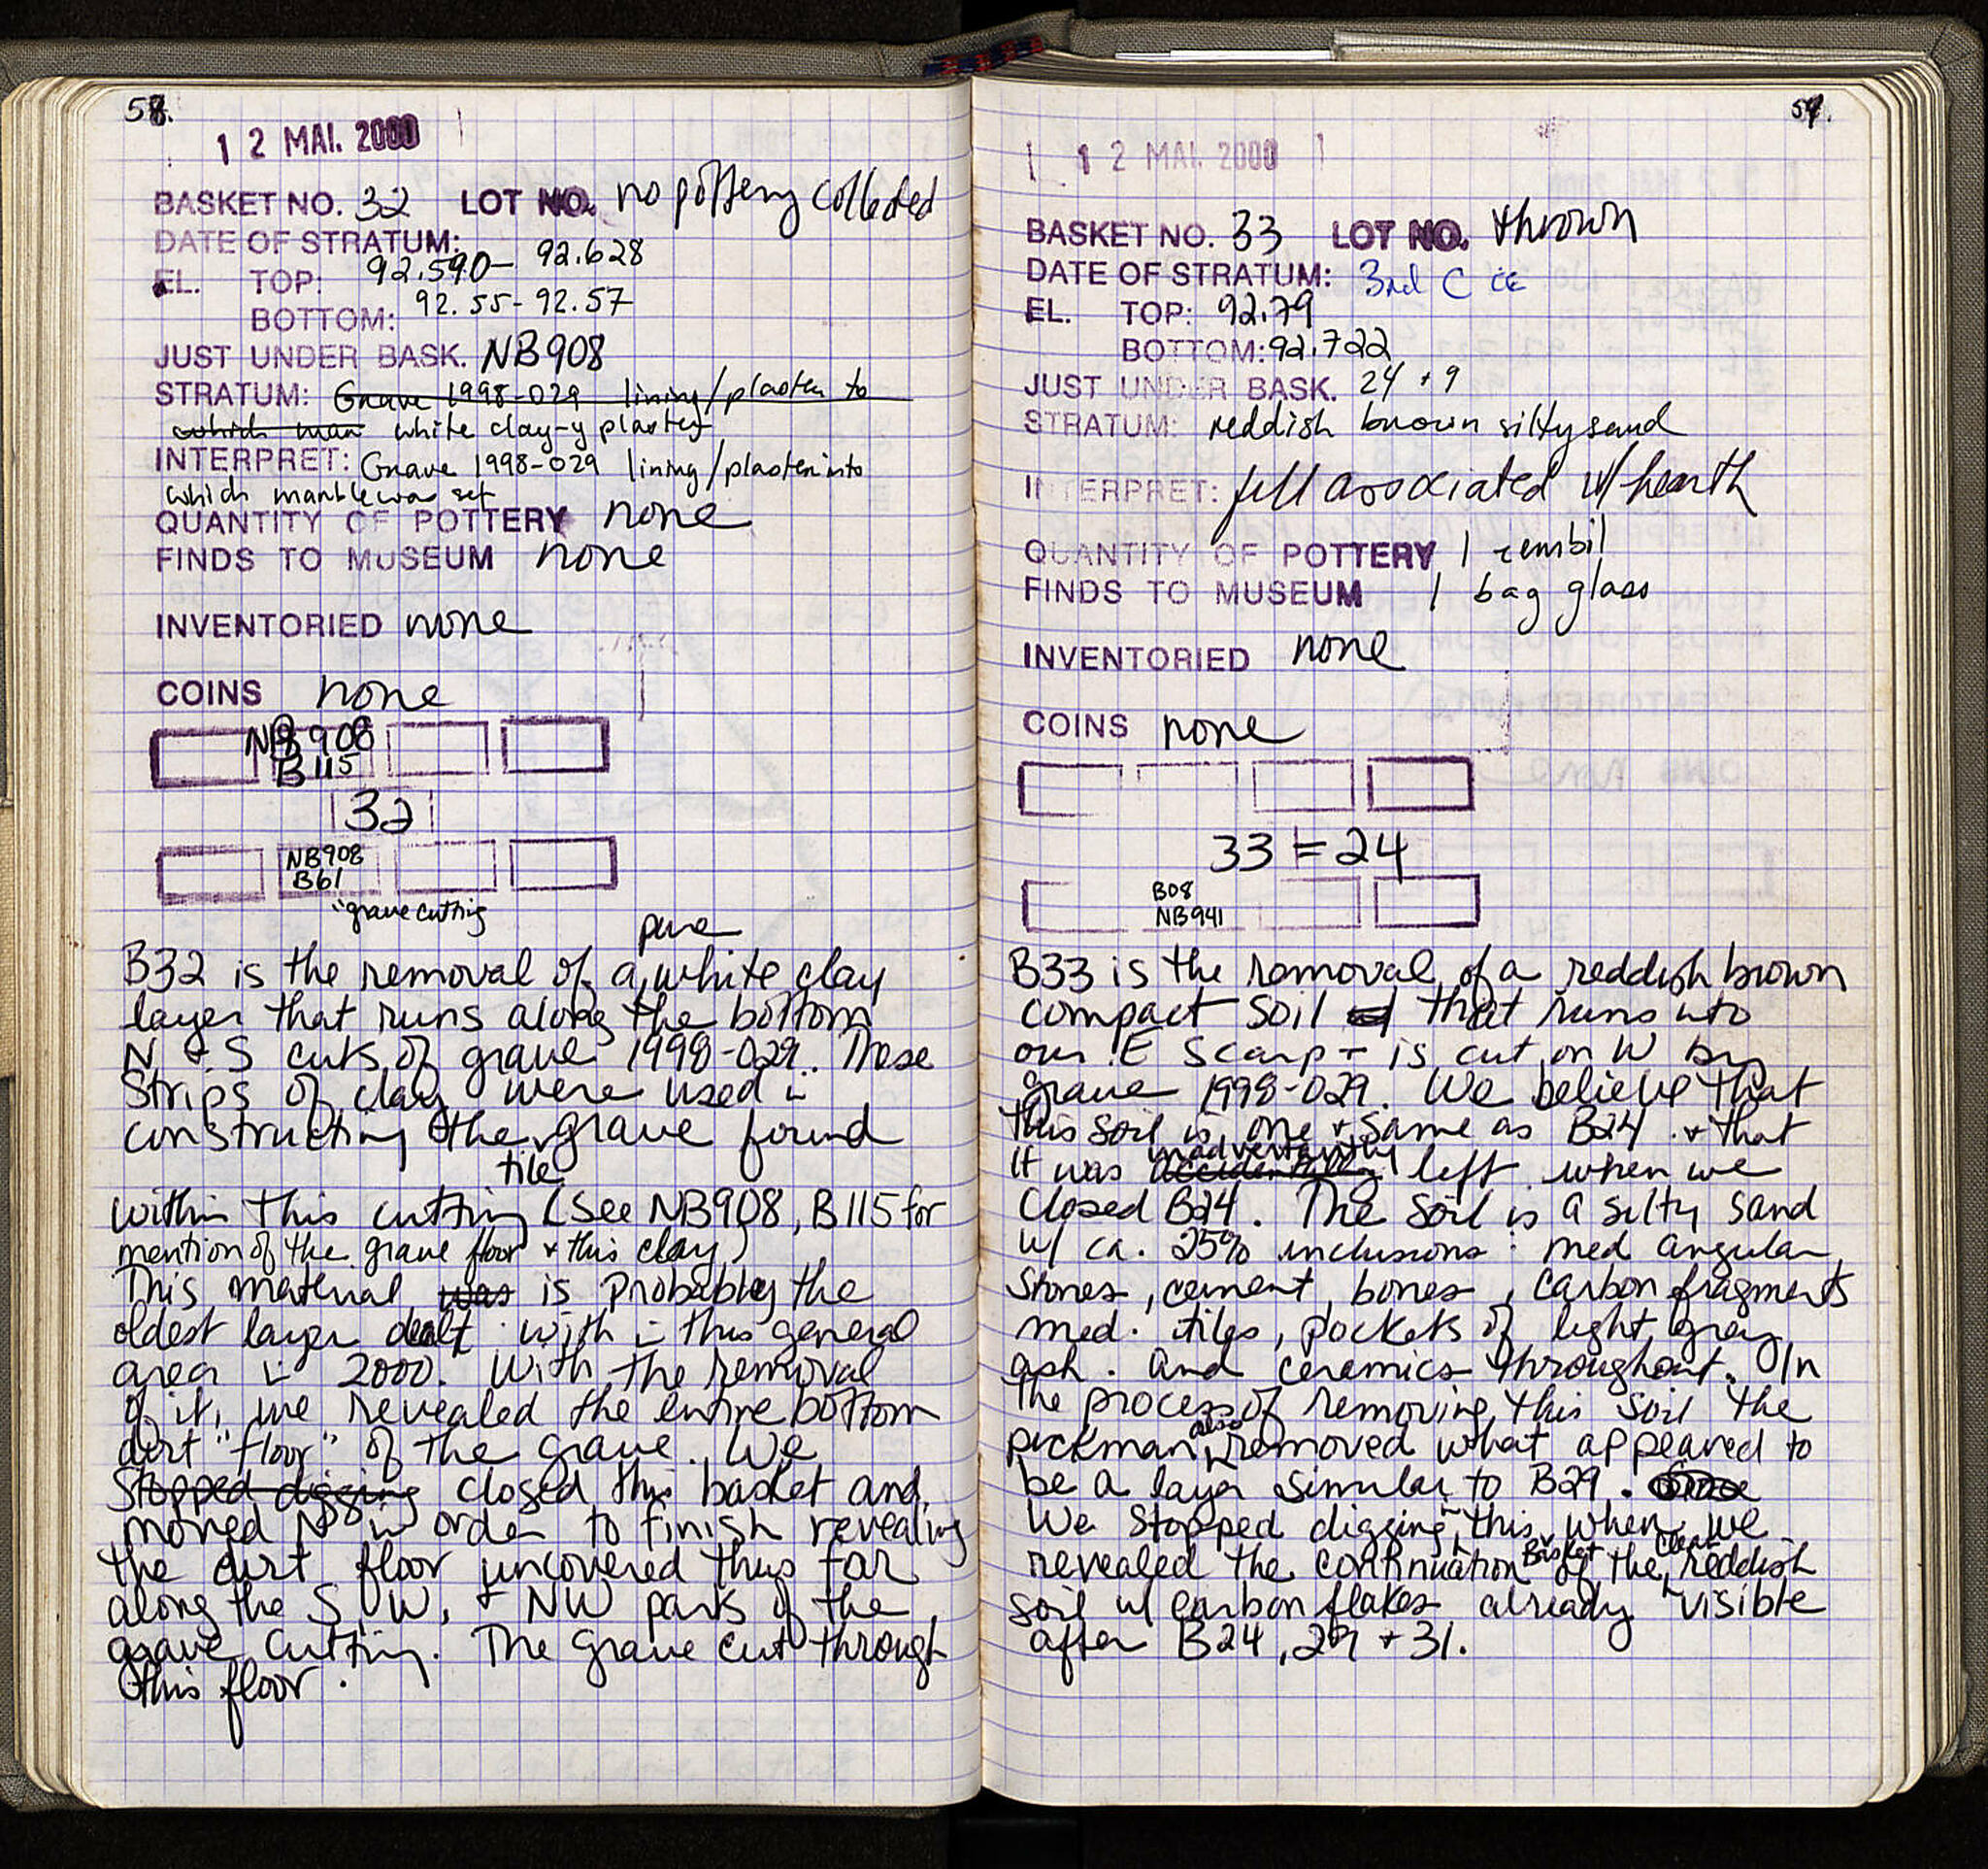 58.
12 MAI. 2000
BASKET NO. 32 LOT NO. no pottery collected
DATE OF STRATUM:
EL. TOP: 92.590- 92.628
BOTTOM: 92.55-92.57
JUST UNDER BASK. NB908
STRATUM: Grave 1998-029 lining/plaster to
which mar white clay-y plaster
INTERPRET: Grave 1998-029 lining/plaster into
which marble was set
QUANTITY OF POTTERY none
FINDS TO MUSEUM none
INVENTORIED none
COINS none
NB908
B115
32
NB908
B61
"grave cutting
pure
B32 is the removal of a white clay
layer that runs along the bottom
N + S cuts of grave 1998-029. These
strips of clay were used in
constructing the grave found
tile
within this cutting (see NB908, B115 for
mention of the grave floor + this clay)
This material was is probably the
oldest layer dealt with in this general
area in 2000. With the removal
of it, we revealed the entire bottom
dirt "floor" of the grave. We
stopped digging closed this basket and
moved N in order to finish revealing
the dirt floor uncovered thus far
along the S, W, + NW parts of the
grave cutting. The grave cut through
this floor.
59.
12 MAI. 2000
BASKET NO. 33 LOT NO. thrown
DATE OF STRATUM: 3rd C CE
EL. TOP: 92.79
BOTTOM: 92.722
JUST UNDER BASK. 24 + 9
STRATUM: reddish brown silty sand
INTERPRET: fill associated w/ hearth
QUANTITY OF POTTERY 1 zembil
FINDS TO MUSEUM 1 bag glass
INVENTORIED none
COINS none
33 = 24
B08
NB941
B33 is the removal of a reddish brown
compact soil that runs into
our E scarp + is cut on W by
grave 1998-029. We believe that
this soil is one + same as B24 + that
inadvertantly
it was accidentally left when we
closed B24. The soil is a silty sand
w/ ca. 25% inclusions: med angular
stones, cement, bones, carbon fragments
med. tiles, pockets of light gray
ash. and ceramics throughout. In
the process of removing this soil the
also
pickman removed what appeared to
be a layer similar to B29.
We stopped digging this when we
Basket clear
revealed the continuation of the reddish
soil w/ carbon flakes already visible
after B24, 29 + 31.